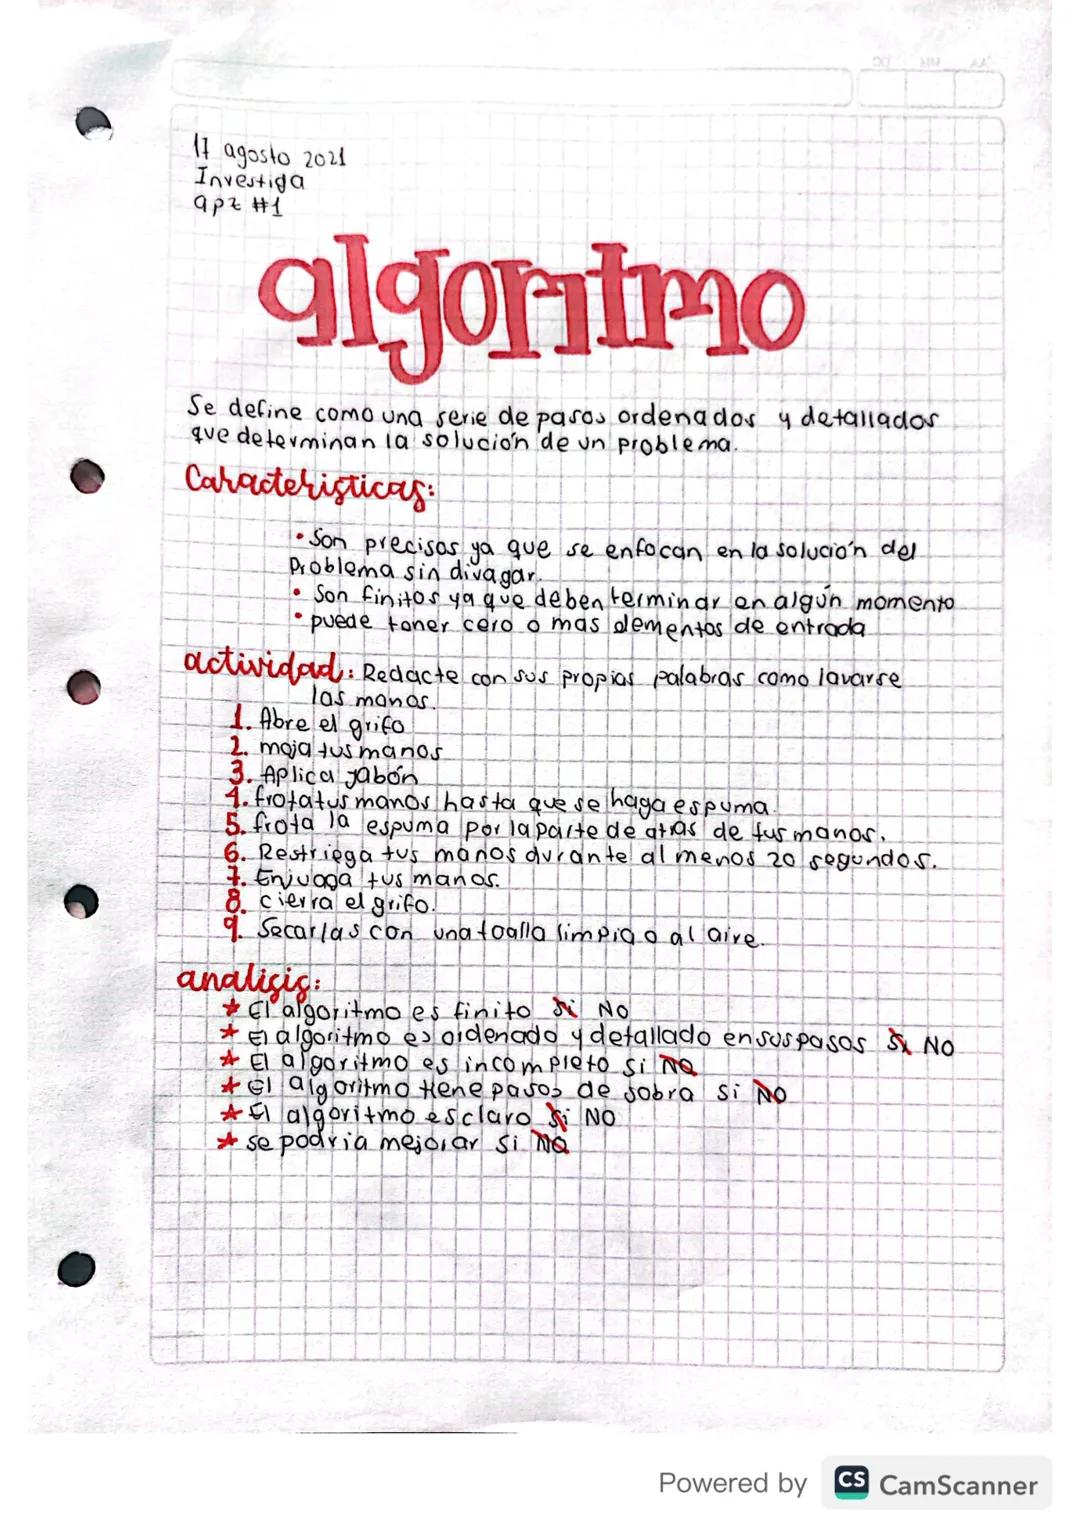 AA MM DC
17 agosto 2021
Investiga
apz #1
algoritmo
Se define como una serie de pasos ordenados y detallados
que determinan la solución de un problema.
Caracteristicas:
• Son precisos ya que se enfocan en la solución del
Problema sin divagar.
• Son finitos ya que deben terminar en algún momento
• puede tener cero o mas elementos de entrada
actividad: Redacte con sus propias palabras como lavarse
las manos.
1. Abre el grifo
2. moja tus manos
3. Aplica jabón
4. frota tus manos hasta que se haga espuma.
5. frota la espuma por la parte de atras de tus manos.
6. Restriega tus manos durante al menos 20 segundos.
7. Enjuaga tus manos.
8. cierra el grifo.
9. Secarlas con una toalla limpia o al aire.
analisis:
★ El algoritmo es finito Si NO
★ El algoritmo es ordenado y detallado en sus pasos Si NO
★ El algoritmo es incompleto si NO
★ El algoritmo tiene pasos de sobra si NO
★ El algoritmo es claro Si NO
★ se podria mejorar si NO
Powered by CS CamScanner